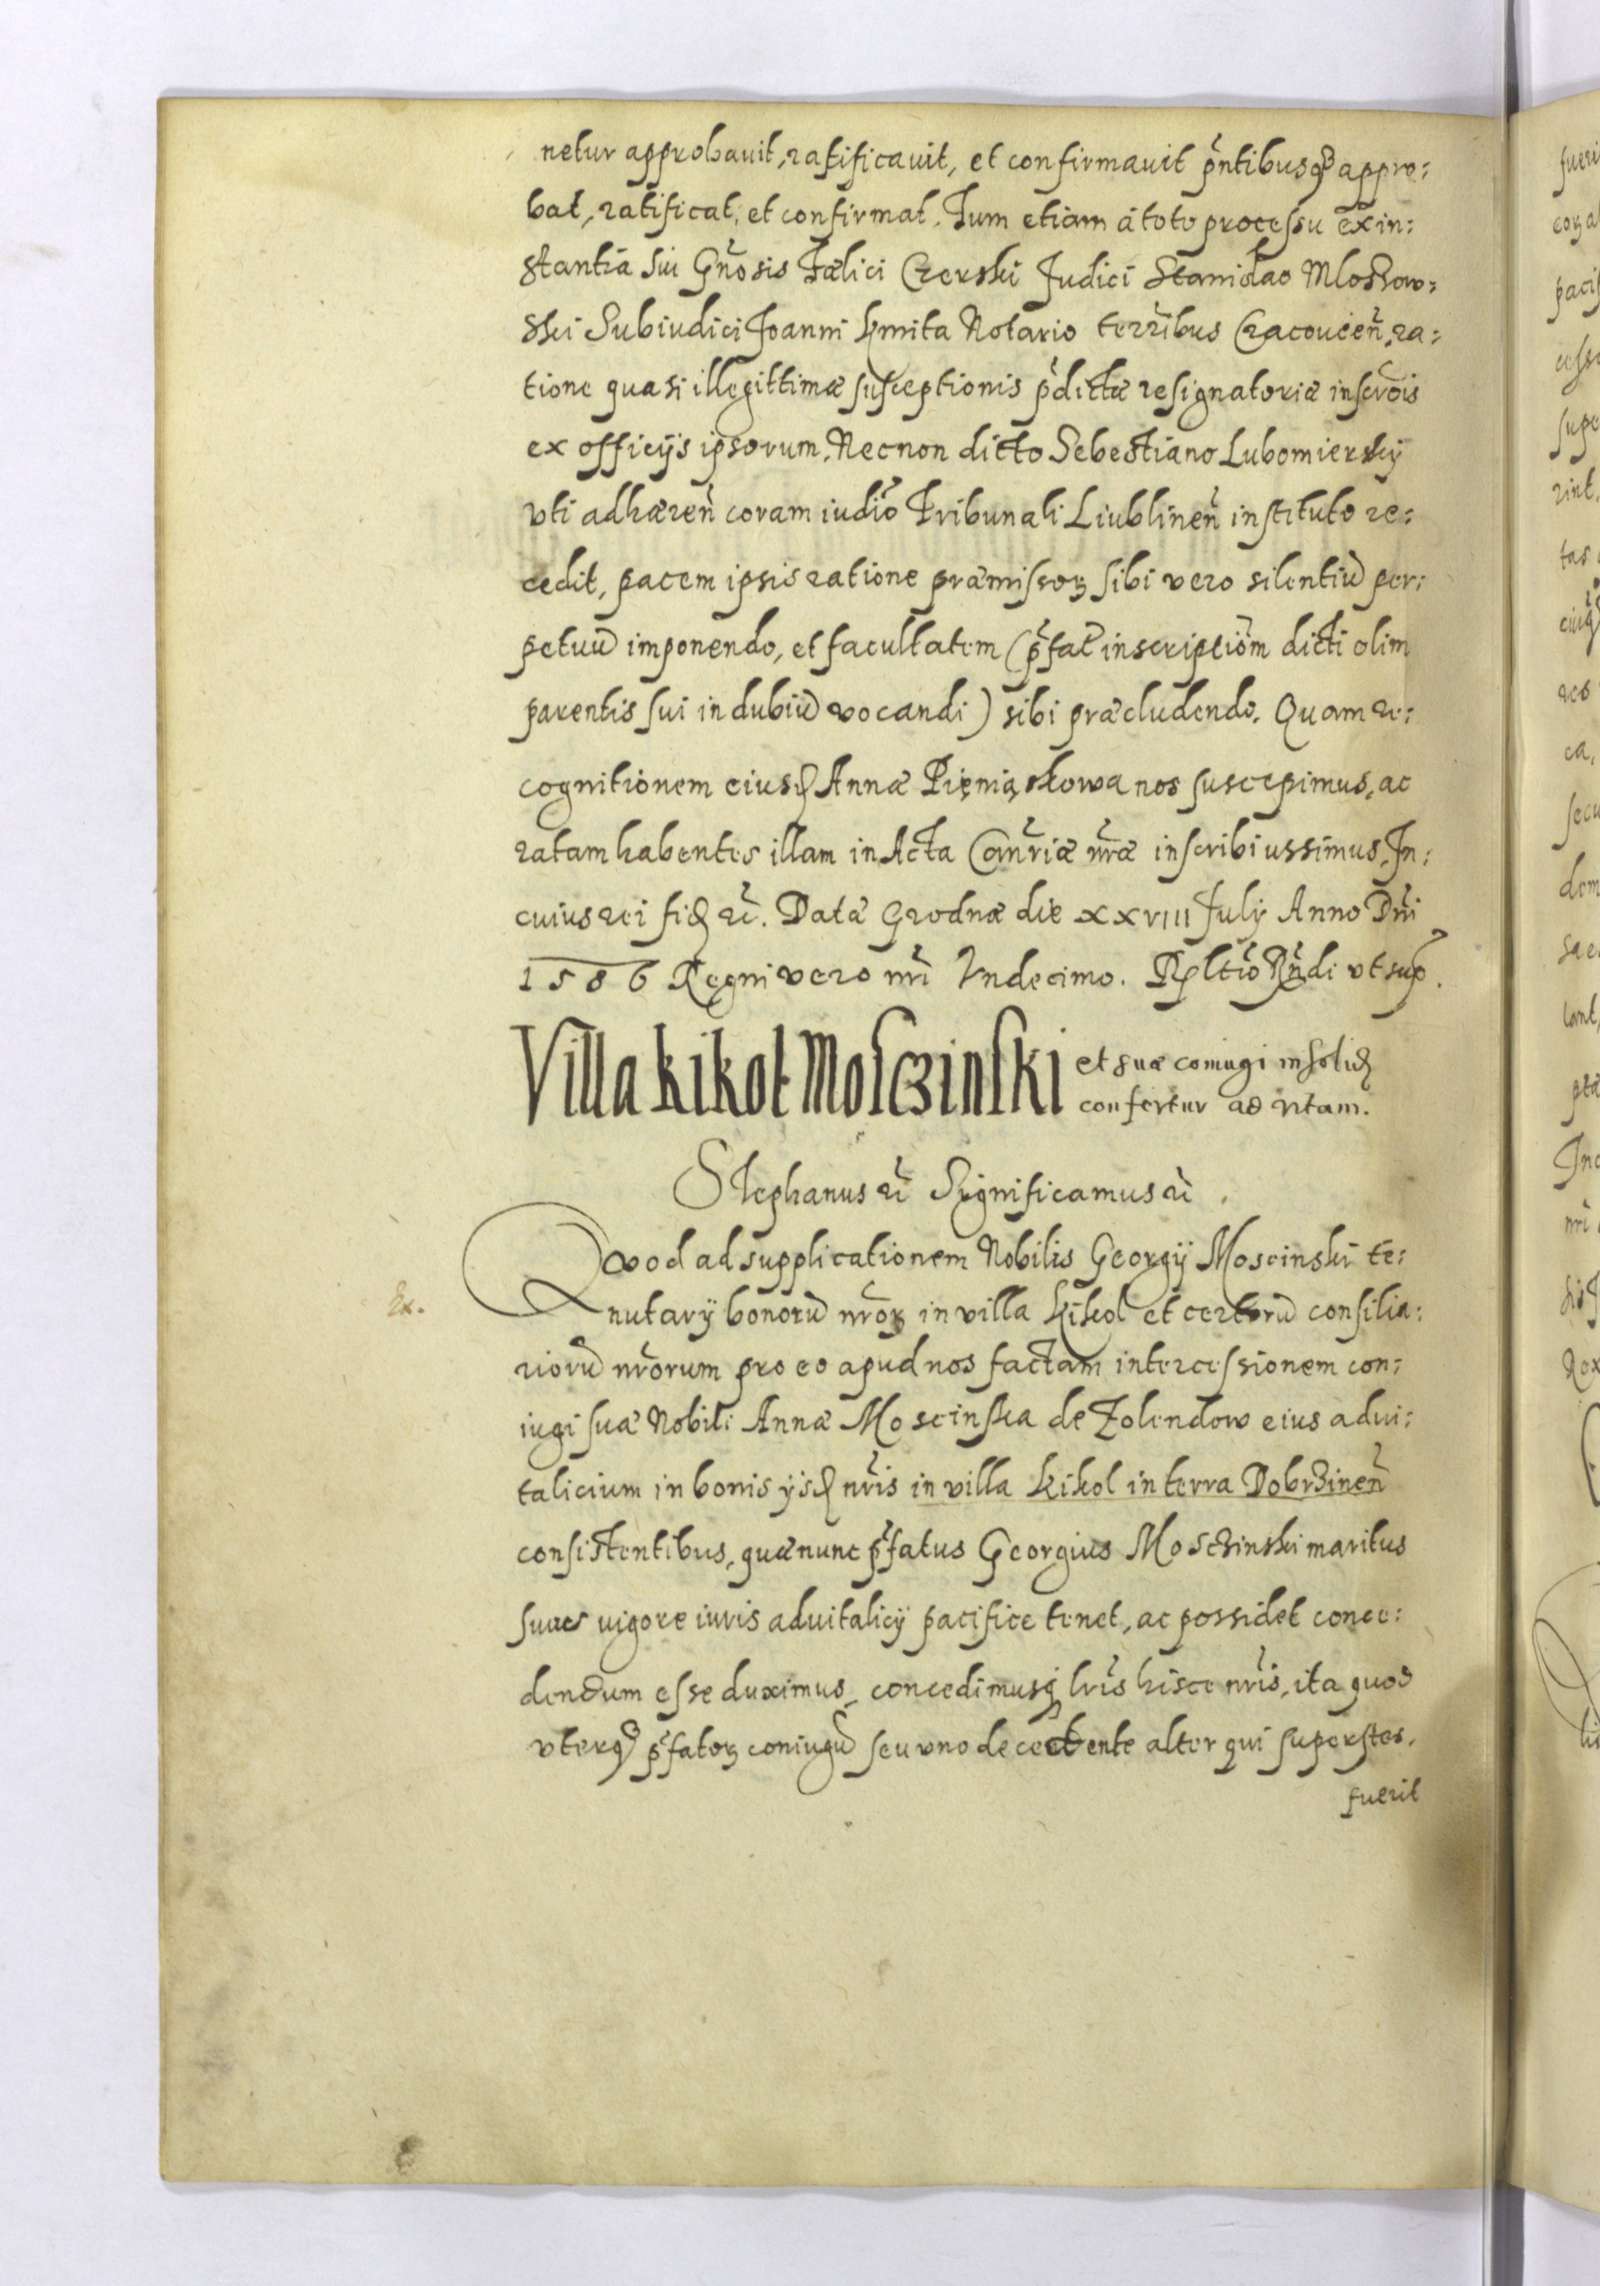 netur approbauit, ratificauit, et confirmauit pñtibusq̃ appro:
bat, ratificat, et confirmat. Tum etiam à toto processu ex in:
stantia sui Gñosis Fælici Czerski Judici Stanislao Mloszow:
ski Subiudici Joanni Kmita Notario terrĩbus Cracouieñ, ra:
tione quasi illegittimæ susceptionis p̃dictæ resignatoriæ inscrõis
ex officijs ipsorum, Necnon dicto Sebestiano Lubomierskÿ
vti adhæreñ coram iudĩo Tribunali Liublineñ instituto re:
cedit, pacem ipsis ratione præmissoꝝ sibi vero silentiũ per:
petuũ imponendo, et facultatem (p̃fat̃ inscriptiõm dicti olim
parentis sui in dubiũ vocandi) sibi præcludendo. Quam re:
cognitionem eiusꝺ Annæ Pięniąskowa nos suscepimus, ac
ratam habentes illam in Acta Cañriæ ñræ inscribi iussimus, In:
cuius rei fiꝺ rc̃. Data Grodnæ die XXVIII July Anno Dñi
1586 Regni vero ñri Vndecimo. Rꝑltĩo Rñdi vt sup̃.
Villa Kikoł Mosczinski et suæ coniugi insoliꝺ
confertur ad vitam.
Stephanus rc̃ Significamus rc̃.
Quod ad supplicationem Nobilis Georgÿ Moscinski te:
Ex. nutarÿ bonorũ ñroꝝ in villa Kikol et certorũ consilia:
riorũ ñrorum pro eo apud nos factam intercessionem con:
iugi suæ Nobili Annæ Moscinska de Zolendow eius adui:
talicium in bonis ÿsꝺ ñris in villa Kikol in terra Dobrzineñ
consistentibus, quæ nunc p̃fatus Georgius Mosczinski maritus
suus vigore iuris aduitalicÿ pacifice tenet, ac possidet conce:
dendum esse duximus, concedimusq̃ lr̃is hisce ñris, ita quod
vterq̃ p̃fatoꝝ coniugũ seu vno decedente alter qui superstes.
fuerit